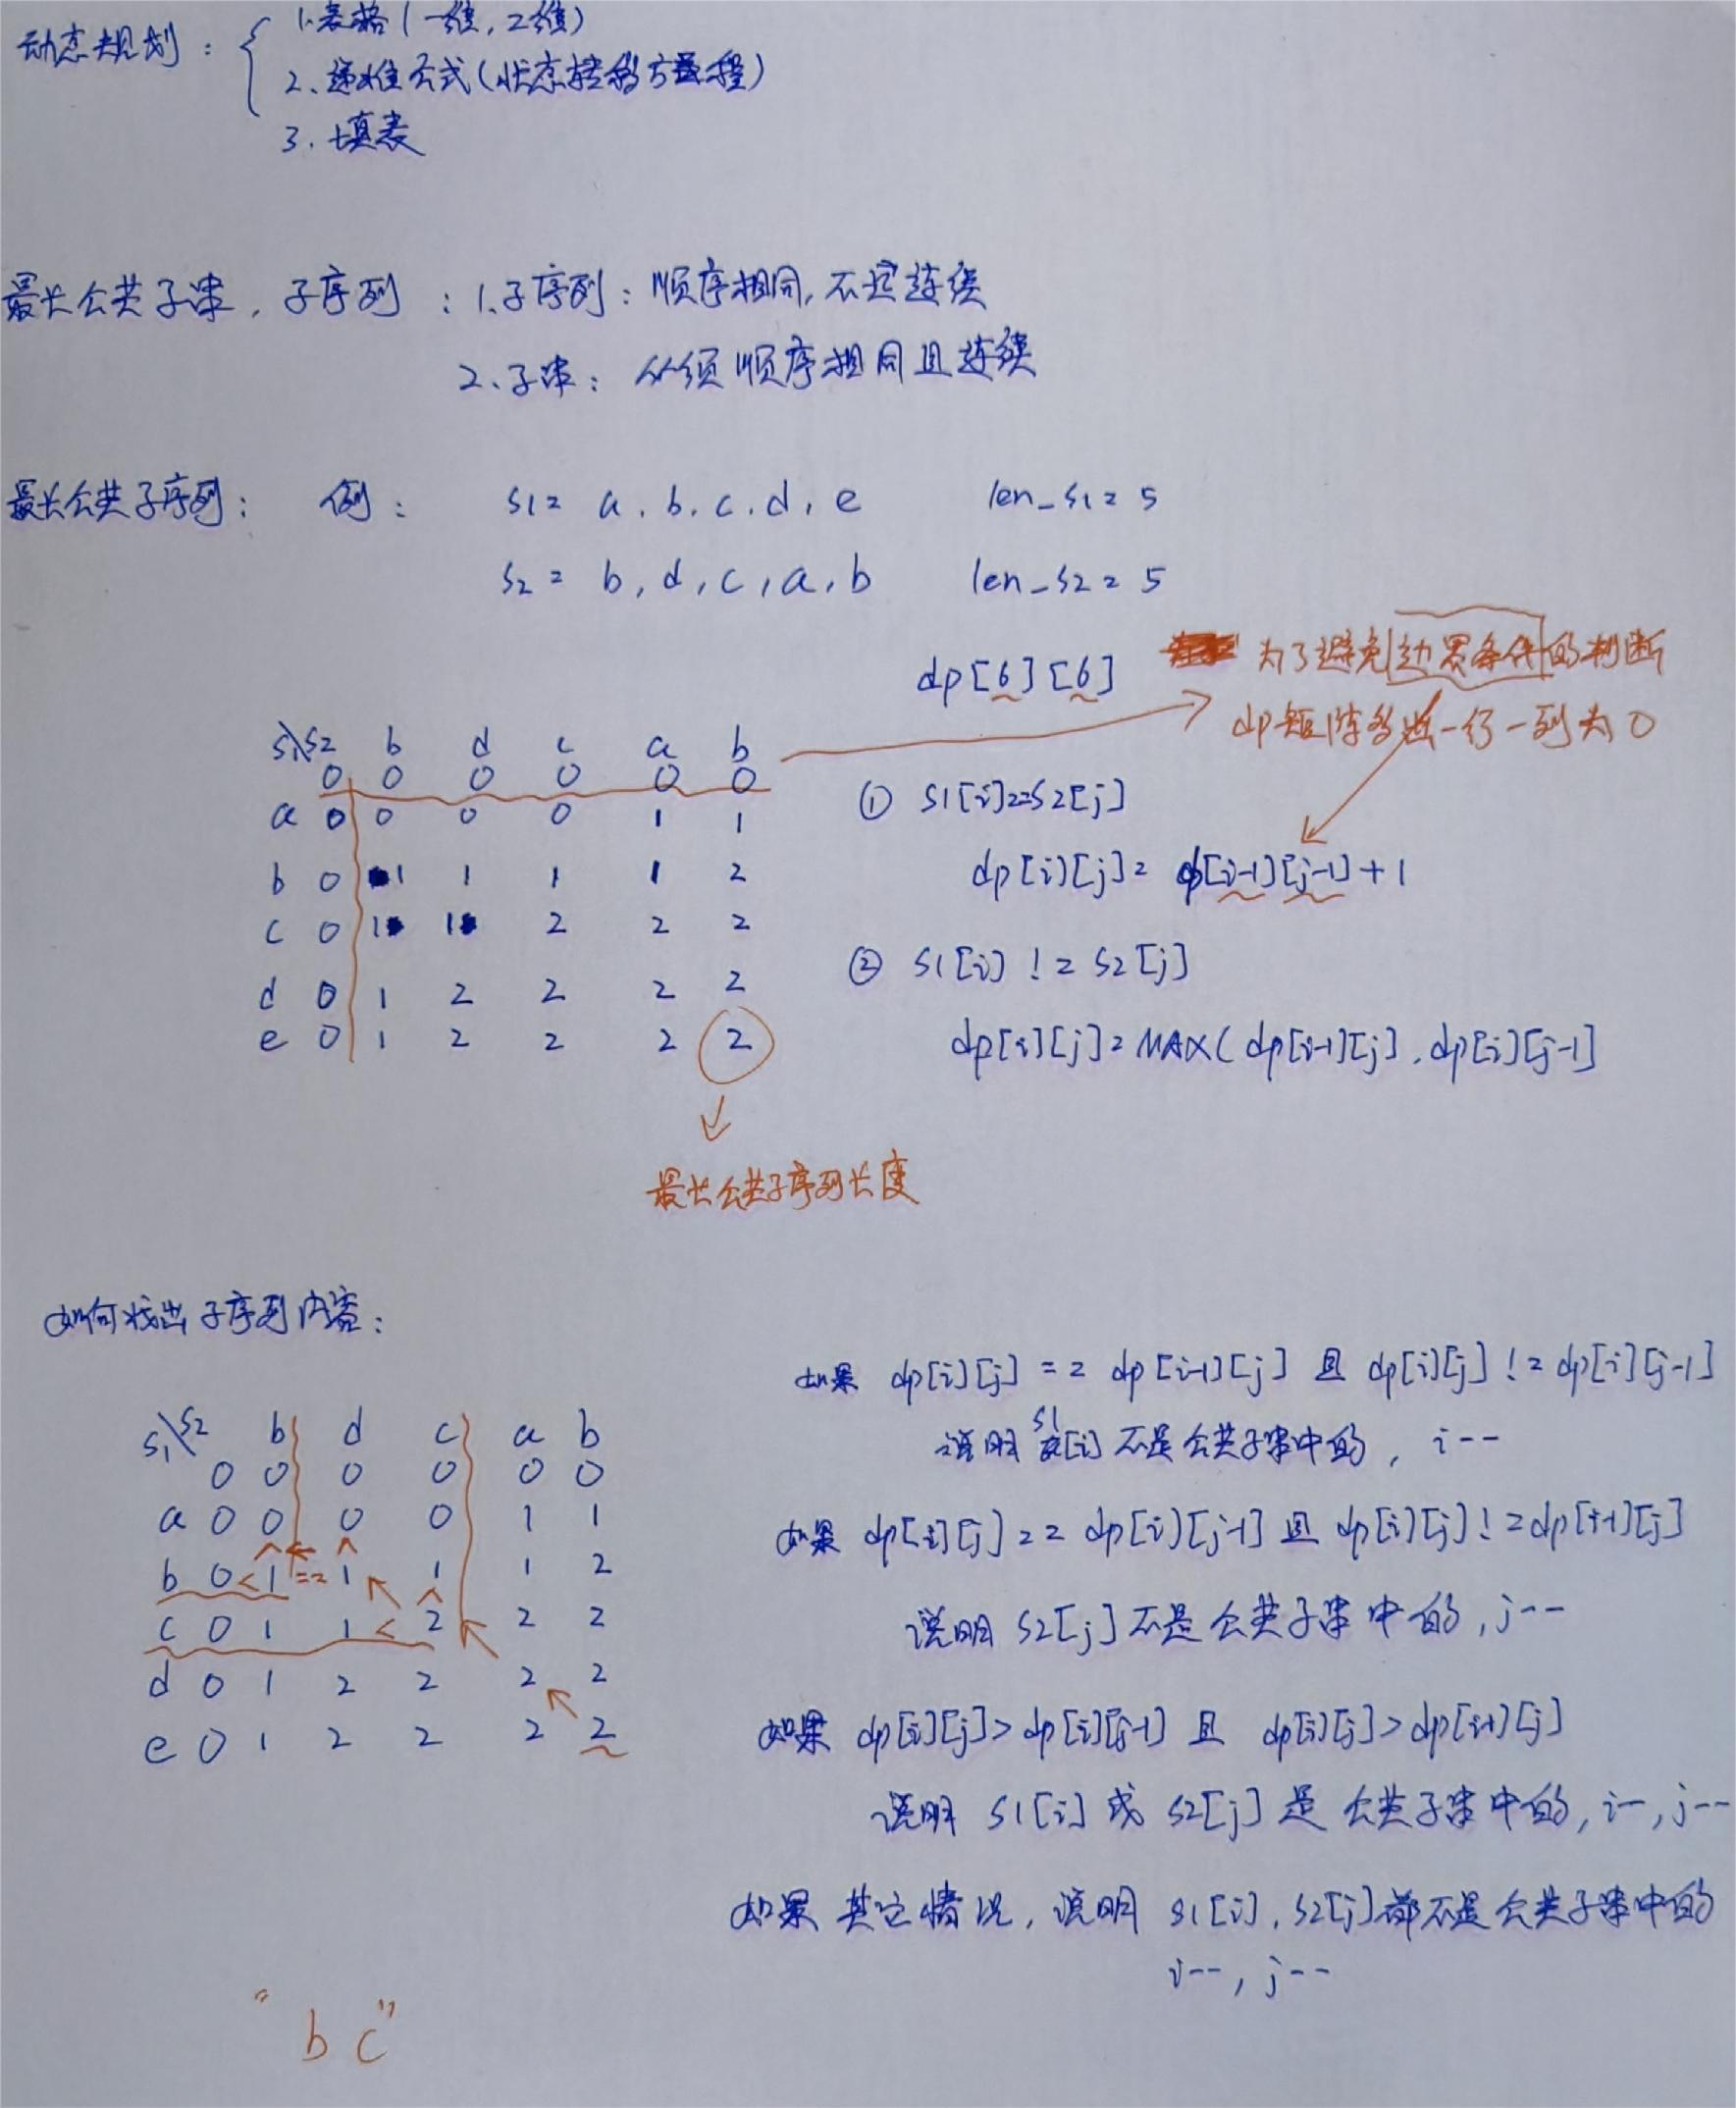 动态规划：
1.表格(一维,2维)
2、递推公式(状态转移方程)
3.填表
最长公共子串,子序列：1.子序列：顺序相同,不定连续
2、子串：必须顺序相同且连续
最长公共子序列： 例： S1= a,b,c,d,e len_S1=5
S2= b,d,c,a,b len_S2=5
dp[6][6] 为了避免边界条件的判断
dp矩阵多出一行一列为0
S1\S2 b d c a b
0 0 0 0 0 0
a 0 0 0 0 1 1
b 0 1 1 1 1 2
c 0 1 1 2 2 2
d 0 1 2 2 2 2
e 0 1 2 2 2 2
① S1[i]==S2[j]
dp[i][j]= dp[i-1][j-1]+1
② S1[i] != S2[j]
dp[i][j]=MAX( dp[i-1][j],dp[i][j-1]
最长公共子序列长度
如何找出子序列内容：
S1\S2 b d c a b
0 0 0 0 0 0
a 0 0 0 0 1 1
b 0 < 1 == 1 1 1 2
c 0 1 1 < 2 2 2
d 0 1 2 2 2 2
e 0 1 2 2 2 2
如果 dp[i][j] == dp[i-1][j] 且 dp[i][j] != dp[i][j-1]
说明 S1[i] 不是公共子串中的, i--
如果 dp[i][j] == dp[i][j-1] 且 dp[i][j] != dp[i-1][j]
说明 S2[j] 不是公共子串中的,j--
如果 dp[i][j]> dp[i][j-1] 且 dp[i][j]> dp[i-1][j]
说明 S1[i] 或 S2[j] 是 公共子串中的, i--,j--
如果 其它情况,说明 S1[i],S2[j]都不是公共子串中的
i--, j--
"bc"